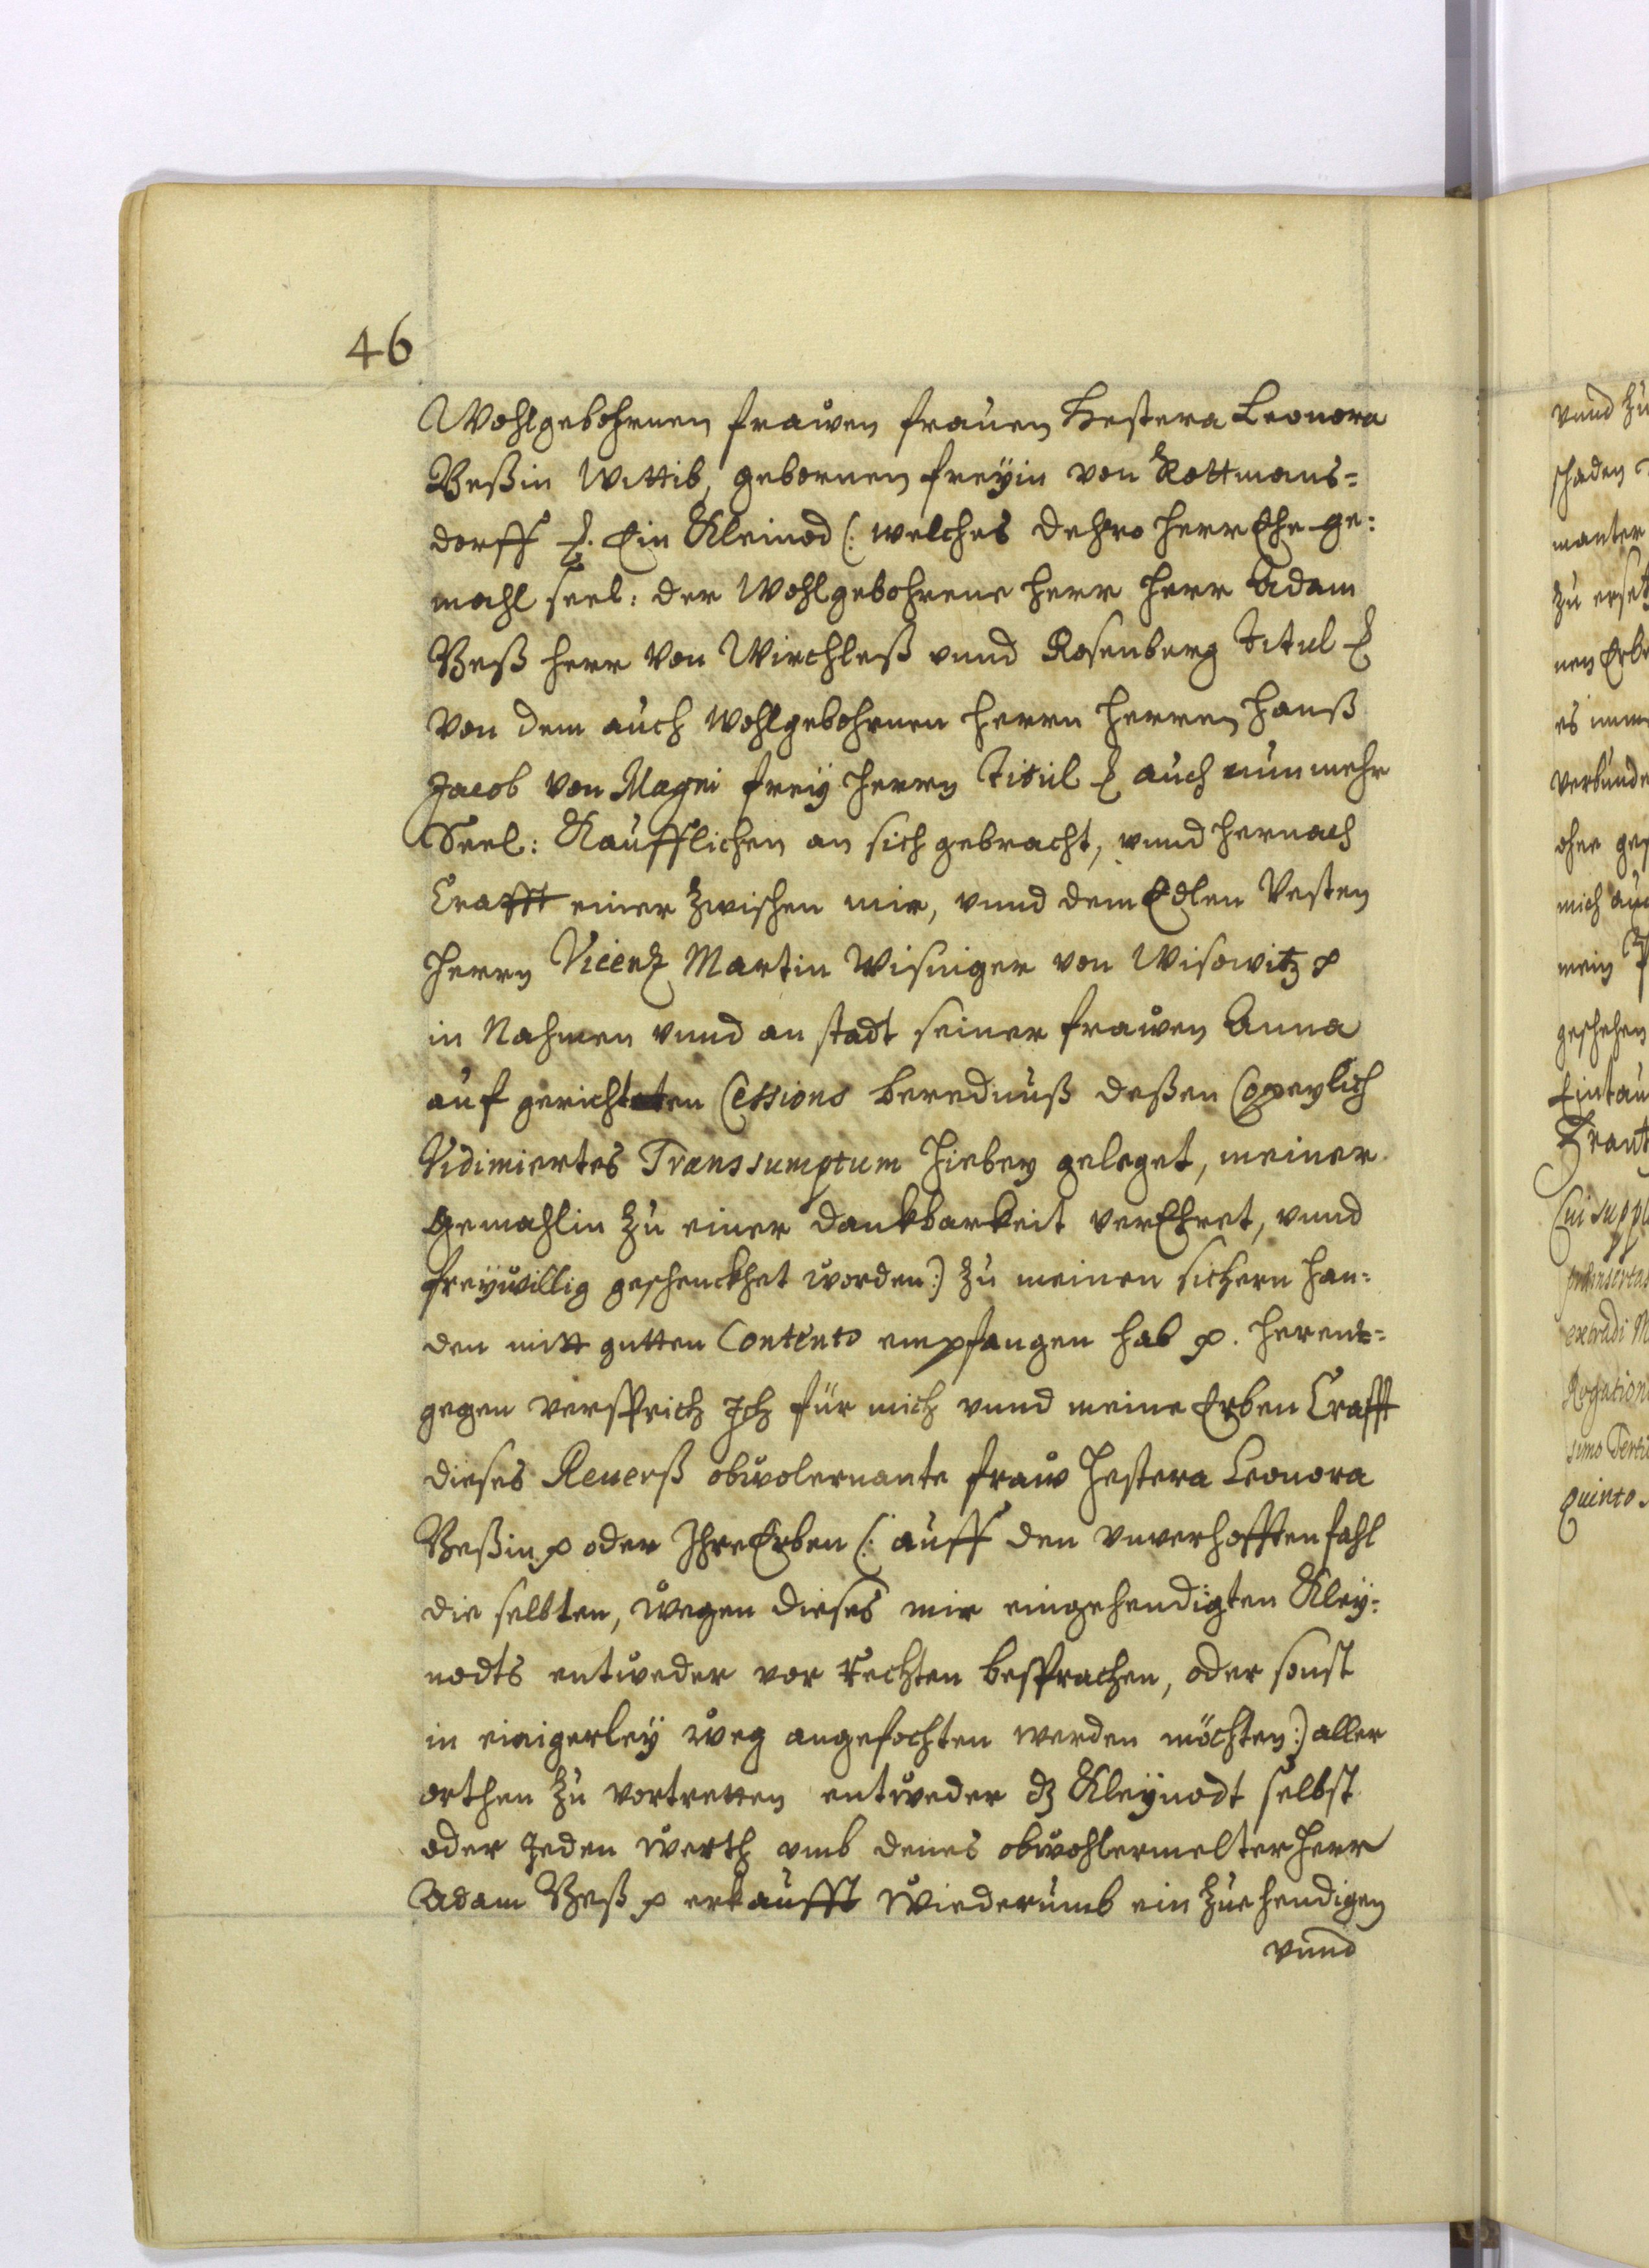 46
Wohlgebohrnen frawen frauen Hestera Leonora
Beßin Wittib, gebornen freÿin von Kottmans=
dorff ꝛ. Ein Kleinod (: welches dehro herr Ehe ge=
mahl seel: der Wohlgebohrene herr herr Adam
Beß herr von Wirchleß vnnd Rosenberg Titul ꝛ
von dem auch Wohlgebohrnen herrn herren Hanß
Jacob von Magni freÿ herrn Titul ꝛ auch nunmehr
Seel: Kaufflichen an sich gebracht, vnnd hernach
Crafft einer zwischen mir, vnnd dem Edlen Vesten
herrn Vicenz Martin Wisniger von Wisowitz ꝛ
in Nahmen vnnd an stadt seiner frawen Anna
auf gerichteten Cessions berednuß deßen Copeylich
Vidimiertes Transsumptum hiebey geleget, meiner
Gemahlin zu einer dankbarkeit verEhret, vnnd
freÿwillig geschenckhet worden:) zu meinen sichern han=
den mitt gutten Contento empfangen hab ꝛ. herent=
gegen versprich Ich für mich vnnd meine Erben Crafft
dieses Reuerß obwolernante fraw Hestera Leonora
Beßin ꝛ oder Ihre Erben (: auff den vnverhofften fahl
die selbten, wegen dieses mir eingehendigten Kleÿ=
nodts entweder vor rechten besprachen, oder sonst
in einigerleÿ weg angefochten werden möchten:) aller
orthen zu vortretten entweder dz Kleÿnodt selbst
oder Jeden werth vmb denes obwohlermelter herr
Adam Beß ꝛ erkaufft wiederumb ein zue hendigen
vnnd